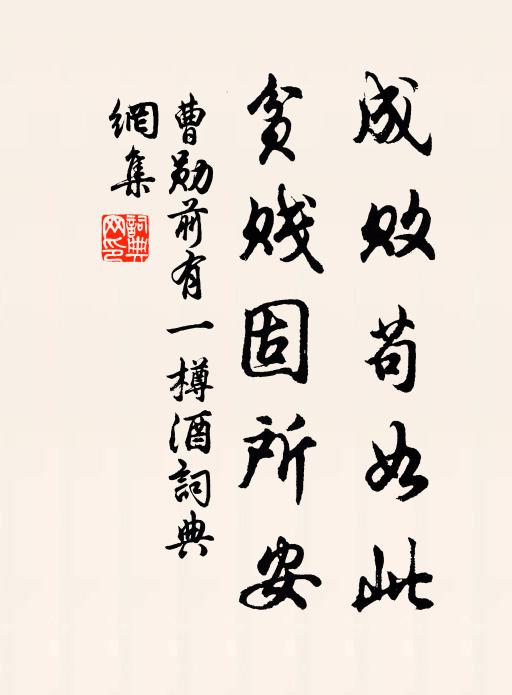 成敗苟如此
貧賤固所安
曹勛前有一樽酒詞典
網集
詞典網印